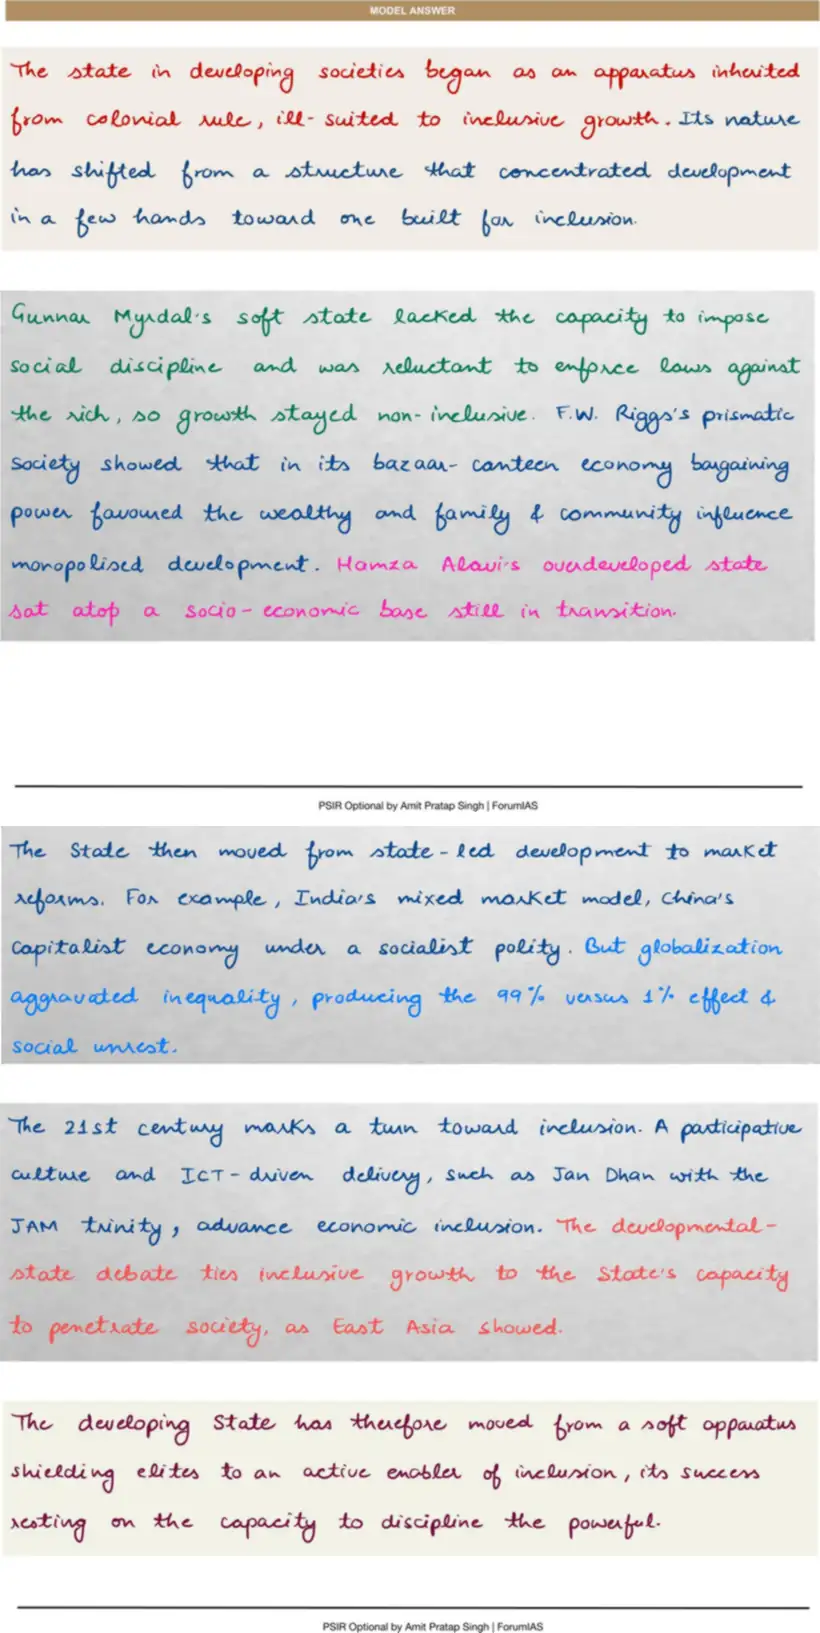 MODEL ANSWER
The state in developing societies began as an apparatus inherited
from colonial rule, ill-suited to inclusive growth. Its nature
has shifted from a structure that concentrated development
in a few hands toward one built for inclusion.
Gunnar Myrdal's soft state lacked the capacity to impose
social discipline and was reluctant to enforce laws against
the rich, so growth stayed non-inclusive. F.W. Riggs's prismatic
society showed that in its bazaar-canteen economy bargaining
power favoured the wealthy and family & community influence
monopolised development. Hamza Alavi's overdeveloped state
sat atop a socio-economic base still in transition.
PSIR Optional by Amit Pratap Singh | ForumIAS
The State then moved from state-led development to market
reforms. For example, India's mixed market model, China's
capitalist economy under a socialist polity. But globalization
aggravated inequality, producing the 99% versus 1% effect &
social unrest.
The 21st century marks a turn toward inclusion. A participative
culture and ICT-driven delivery, such as Jan Dhan with the
JAM trinity, advance economic inclusion. The developmental-
state debate ties inclusive growth to the State's capacity
to penetrate society, as East Asia showed.
The developing State has therefore moved from a soft apparatus
shielding elites to an active enabler of inclusion, its success
resting on the capacity to discipline the powerful.
PSIR Optional by Amit Pratap Singh | ForumIAS